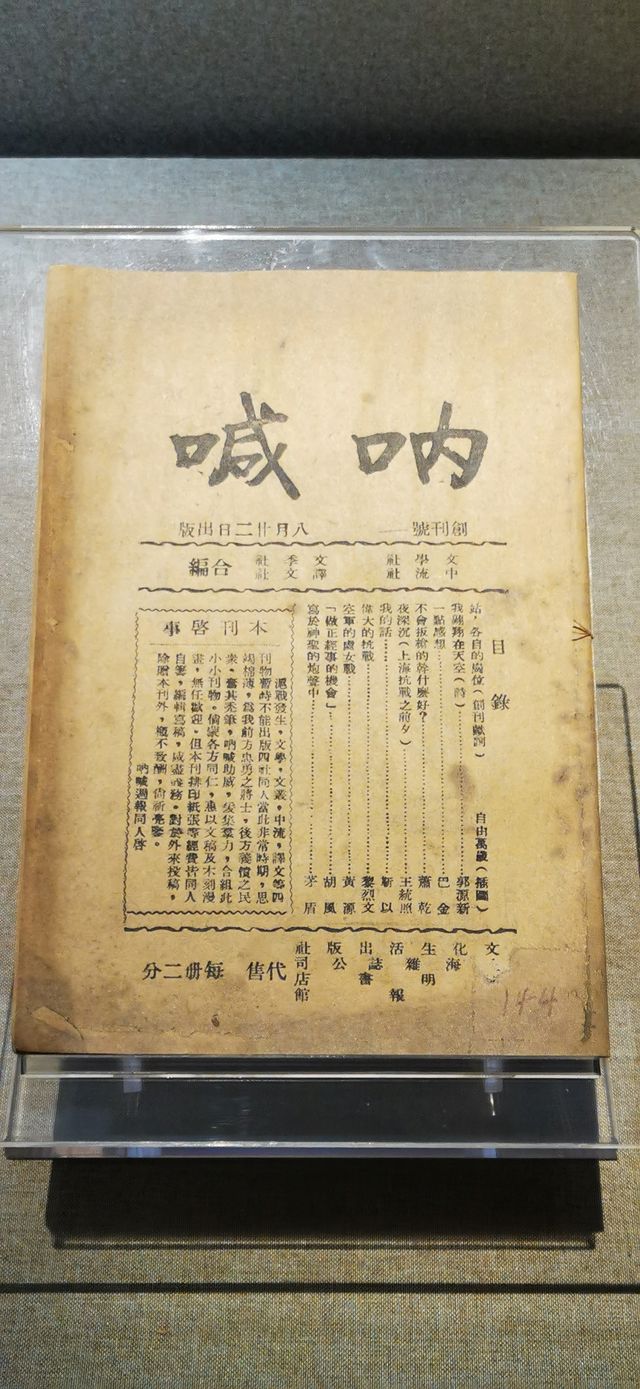 吶喊
創刊號——八月廿二日出版
文學社 文季社
中流社 譯文社
合編
目錄
站,各自的崗位(創刊獻詞) 自由萬歲(插圖)
我翺翔在天空(詩)……郭源新
一點感想……巴金
不會扳槍的幹什麼好?……蕭乾
夜深沉(上海抗戰之前夕)……王統照
我的話……靳以
偉大的抗戰……黎烈文
空軍的處女戰……黃源
「做正經事的機會」……胡風
寫於神聖的炮聲中……茅盾
本刊啓事
滬戰發生,文學,文叢,中流,譯文等四
刊物暫時不能出版四社同人當此非常時期,思
竭棉薄,爲我前方忠勇之將士,後方義憤之民
衆,奮其禿筆,吶喊助威,爰集羣力,合組此
小小刊物。倘蒙各方同仁,惠以文稿及木刻漫
畫,無任歡迎。但本刊排印紙張等經費皆同人
自籌,編輯寫稿,咸盡義務。對於外來投稿,
除贈本刊外,槪不致酬,尙祈亮鑒。
吶喊週報同人啓
文化生活出版社
海雜誌公司
明書店
報館
代售
每冊二分
144